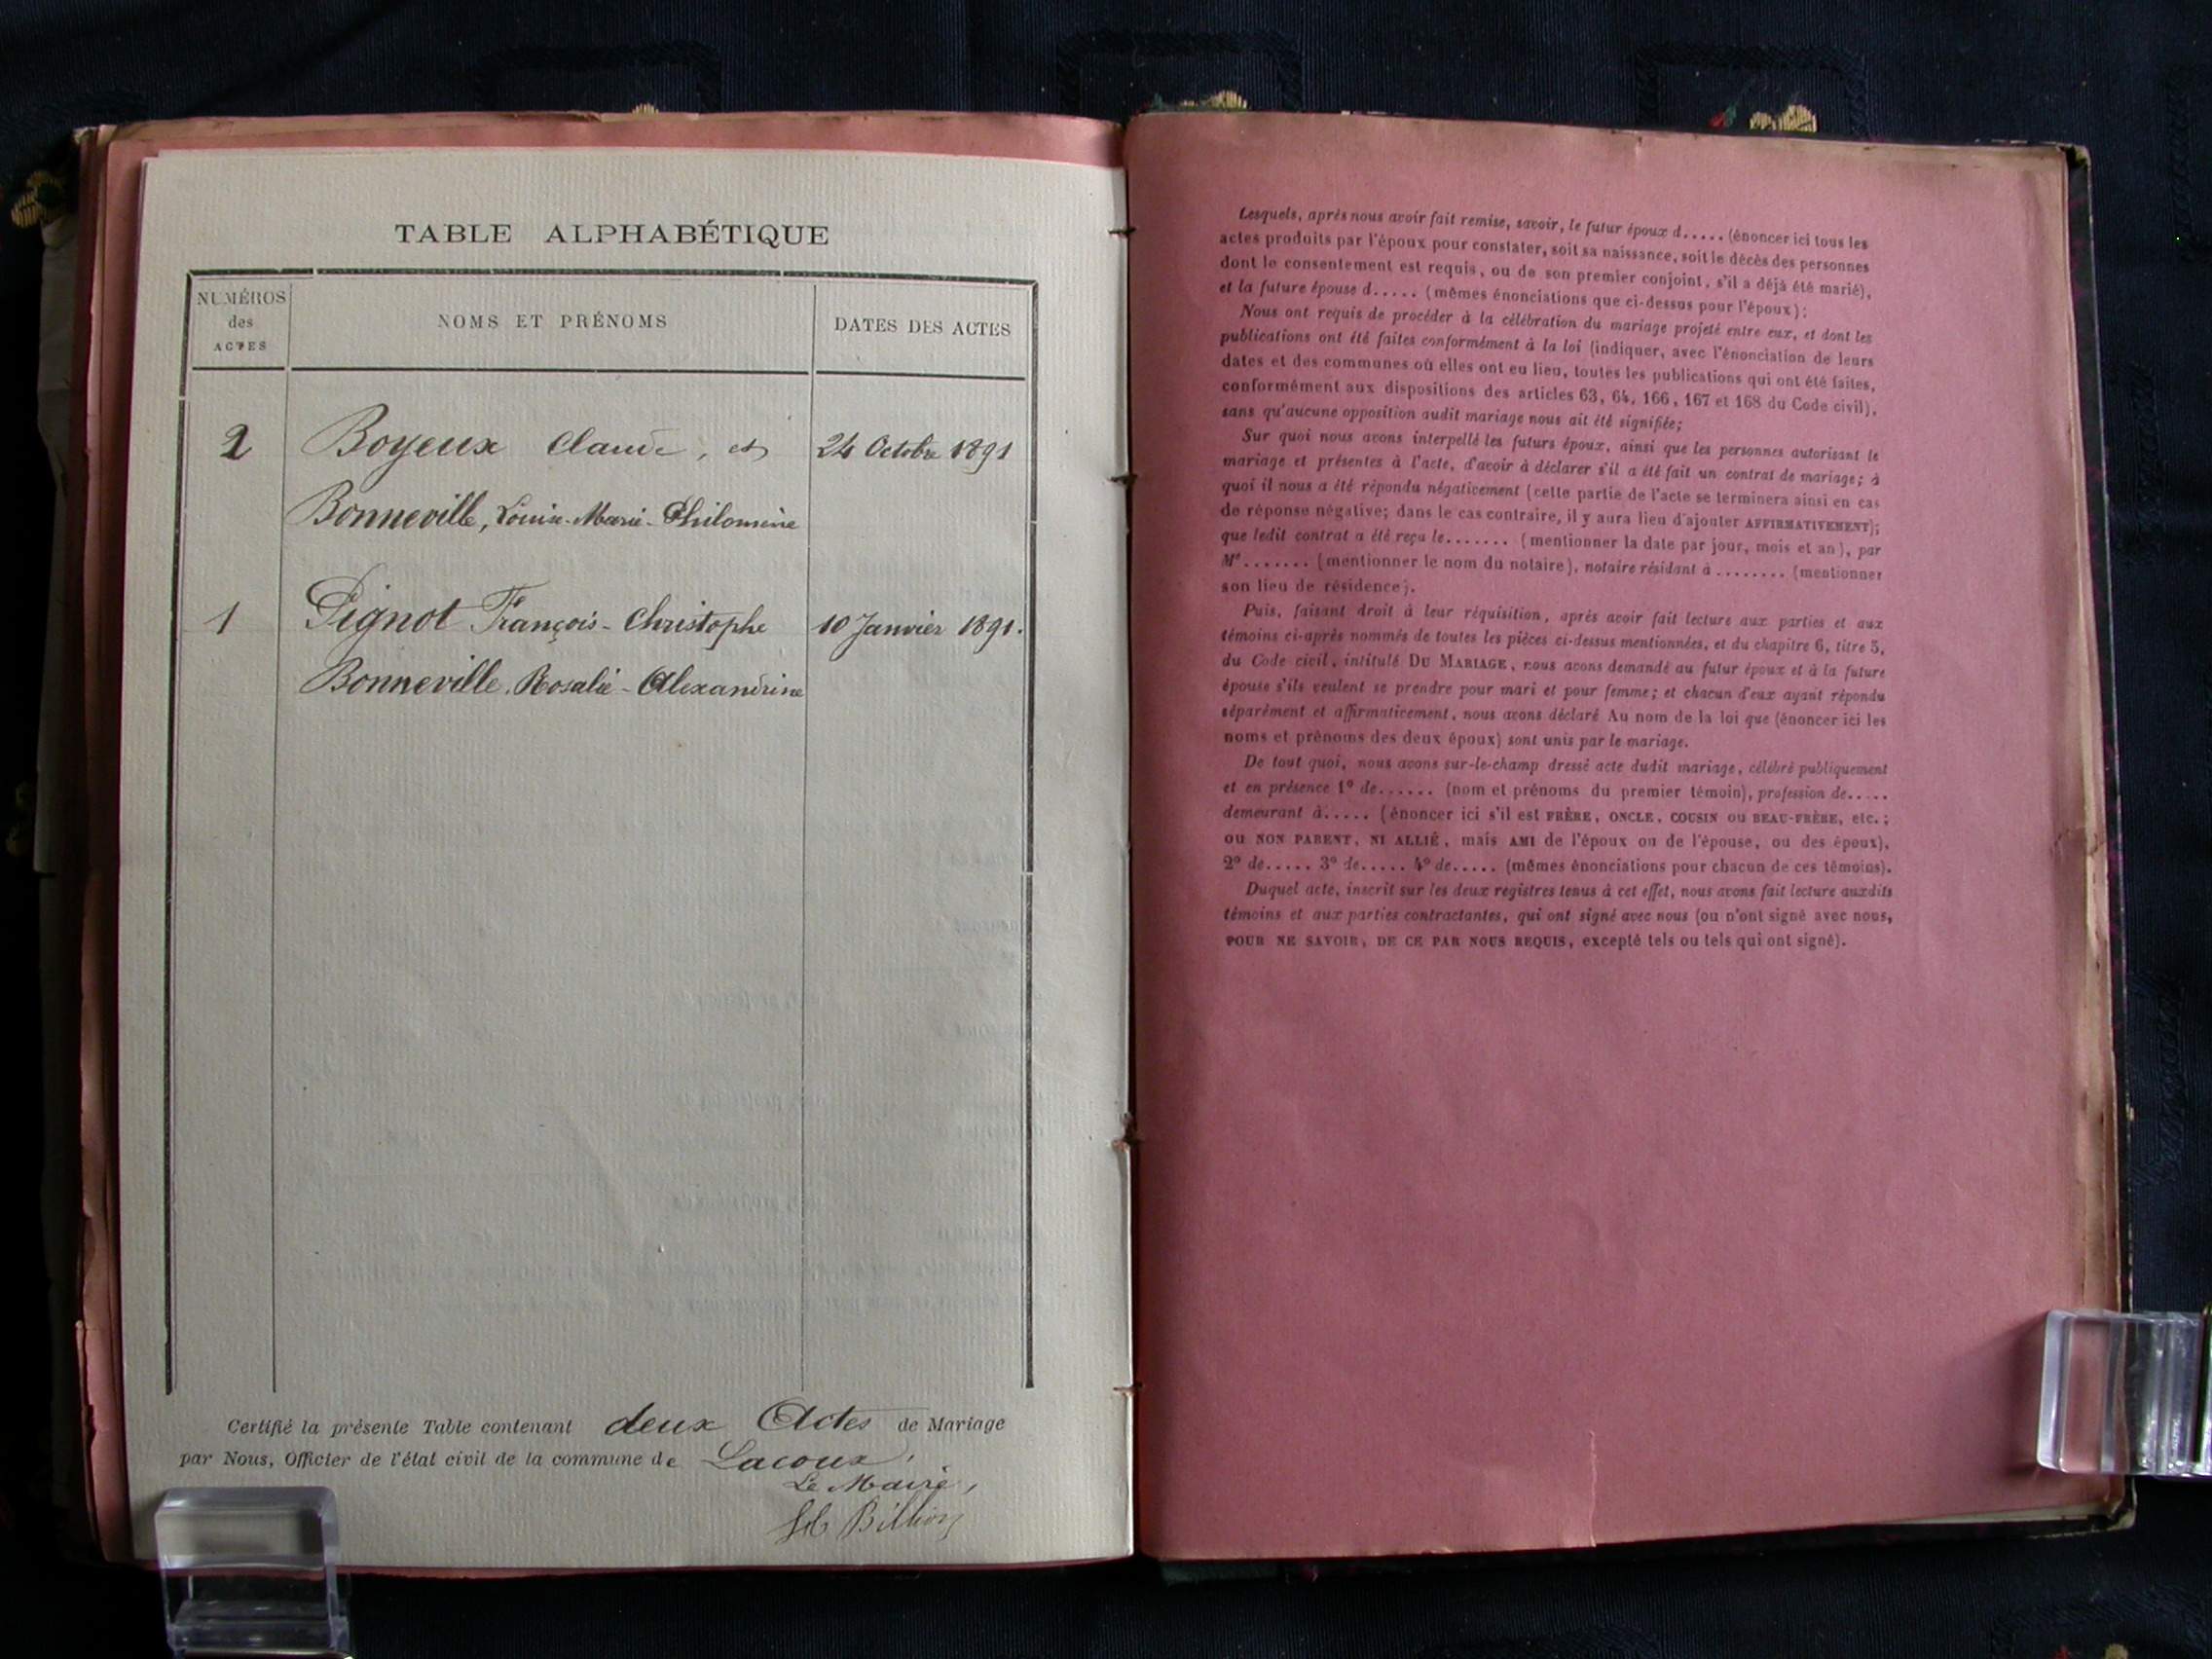 TABLE ALPHABÉTIQUE
NUMÉROS des ACTES
NOMS ET PRÉNOMS
DATES DES ACTES
2 Boyeux Claude, et 24 Octobre 1891
Bonneville, Louise-Marie-Philomène
1 Pignot François-Christophe 10 Janvier 1891.
Bonneville, Rosalie-Alexandrine
Certifié la présente Table contenant deux Actes de Mariage
par Nous, Officier de l'état civil de la commune de Lacoux,
Le Maire,
Billion
Lesquels, après nous avoir fait remise, savoir, le futur époux d..... (énoncer ici tous les
actes produits par l'époux pour constater, soit sa naissance, soit le décès des personnes
dont le consentement est requis, ou de son premier conjoint, s'il a déjà été marié),
et la future épouse d..... (mêmes énonciations que ci-dessus pour l'époux);
Nous ont requis de procéder à la célébration du mariage projeté entre eux, et dont les
publications ont été faites conformément à la loi (indiquer, avec l'énonciation de leurs
dates et des communes où elles ont eu lieu, toutes les publications qui ont été faites,
conformément aux dispositions des articles 63, 64, 166, 167 et 168 du Code civil),
sans qu'aucune opposition audit mariage nous ait été signifiée;
Sur quoi nous avons interpellé les futurs époux, ainsi que les personnes autorisant le
mariage et présentes à l'acte, d'avoir à déclarer s'il a été fait un contrat de mariage; à
quoi il nous a été répondu négativement (cette partie de l'acte se terminera ainsi en cas
de réponse négative; dans le cas contraire, il y aura lieu d'ajouter AFFIRMATIVEMENT);
que ledit contrat a été reçu le....... (mentionner la date par jour, mois et an), par
Me....... (mentionner le nom du notaire), notaire résidant à ........ (mentionner
son lieu de résidence).
Puis, faisant droit à leur réquisition, après avoir fait lecture aux parties et aux
témoins ci-après nommés de toutes les pièces ci-dessus mentionnées, et du chapitre 6, titre 5,
du Code civil, intitulé DU MARIAGE, nous avons demandé au futur époux et à la future
épouse s'ils veulent se prendre pour mari et pour femme; et chacun d'eux ayant répondu
séparément et affirmativement, nous avons déclaré Au nom de la loi que (énoncer ici les
noms et prénoms des deux époux) sont unis par le mariage.
De tout quoi, nous avons sur-le-champ dressé acte dudit mariage, célébré publiquement
et en présence 1° de...... (nom et prénoms du premier témoin), profession de.....
demeurant à..... (énoncer ici s'il est FRÈRE, ONCLE, COUSIN ou BEAU-FRÈRE, etc.;
OU NON PARENT, NI ALLIÉ, mais AMI de l'époux ou de l'épouse, ou des époux),
2° de..... 3° de..... 4° de..... (mêmes énonciations pour chacun de ces témoins).
Duquel acte, inscrit sur les deux registres tenus à cet effet, nous avons fait lecture auxdits
témoins et aux parties contractantes, qui ont signé avec nous (ou n'ont signé avec nous,
POUR NE SAVOIR, DE CE PAR NOUS REQUIS, excepté tels ou tels qui ont signé).